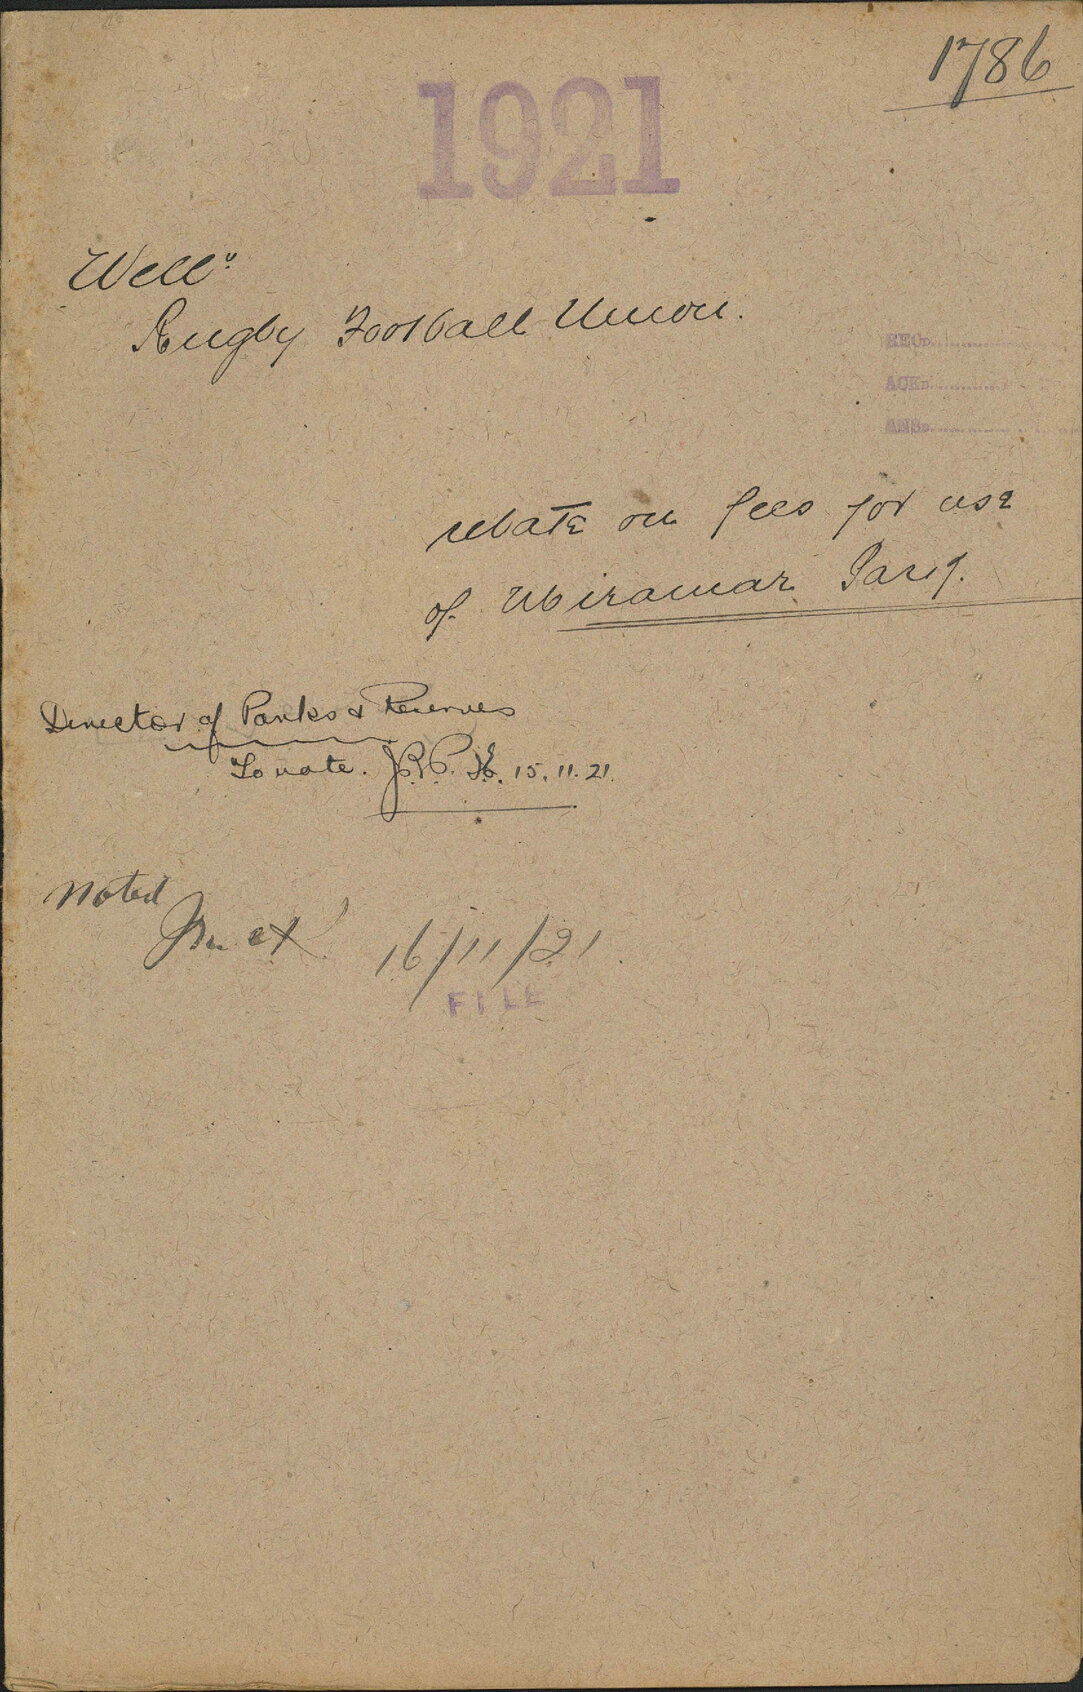 1786
1921
Well°
Rugby Football Union.
RECD.
ACKD.
ANSD.
rebate on fees for use
of Miramar Park.
Director of Parks & Reserves
To note. 15.11.21.
Noted
16/11/21
FILE